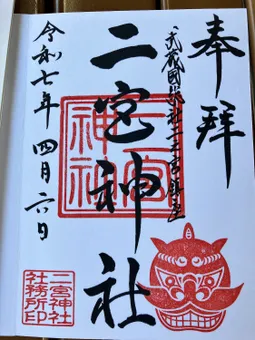 奉拝
武蔵國総社二之宮鎮座
二宮神社
令和七年 四月 六日
二宮神社
二宮神社
社務所印